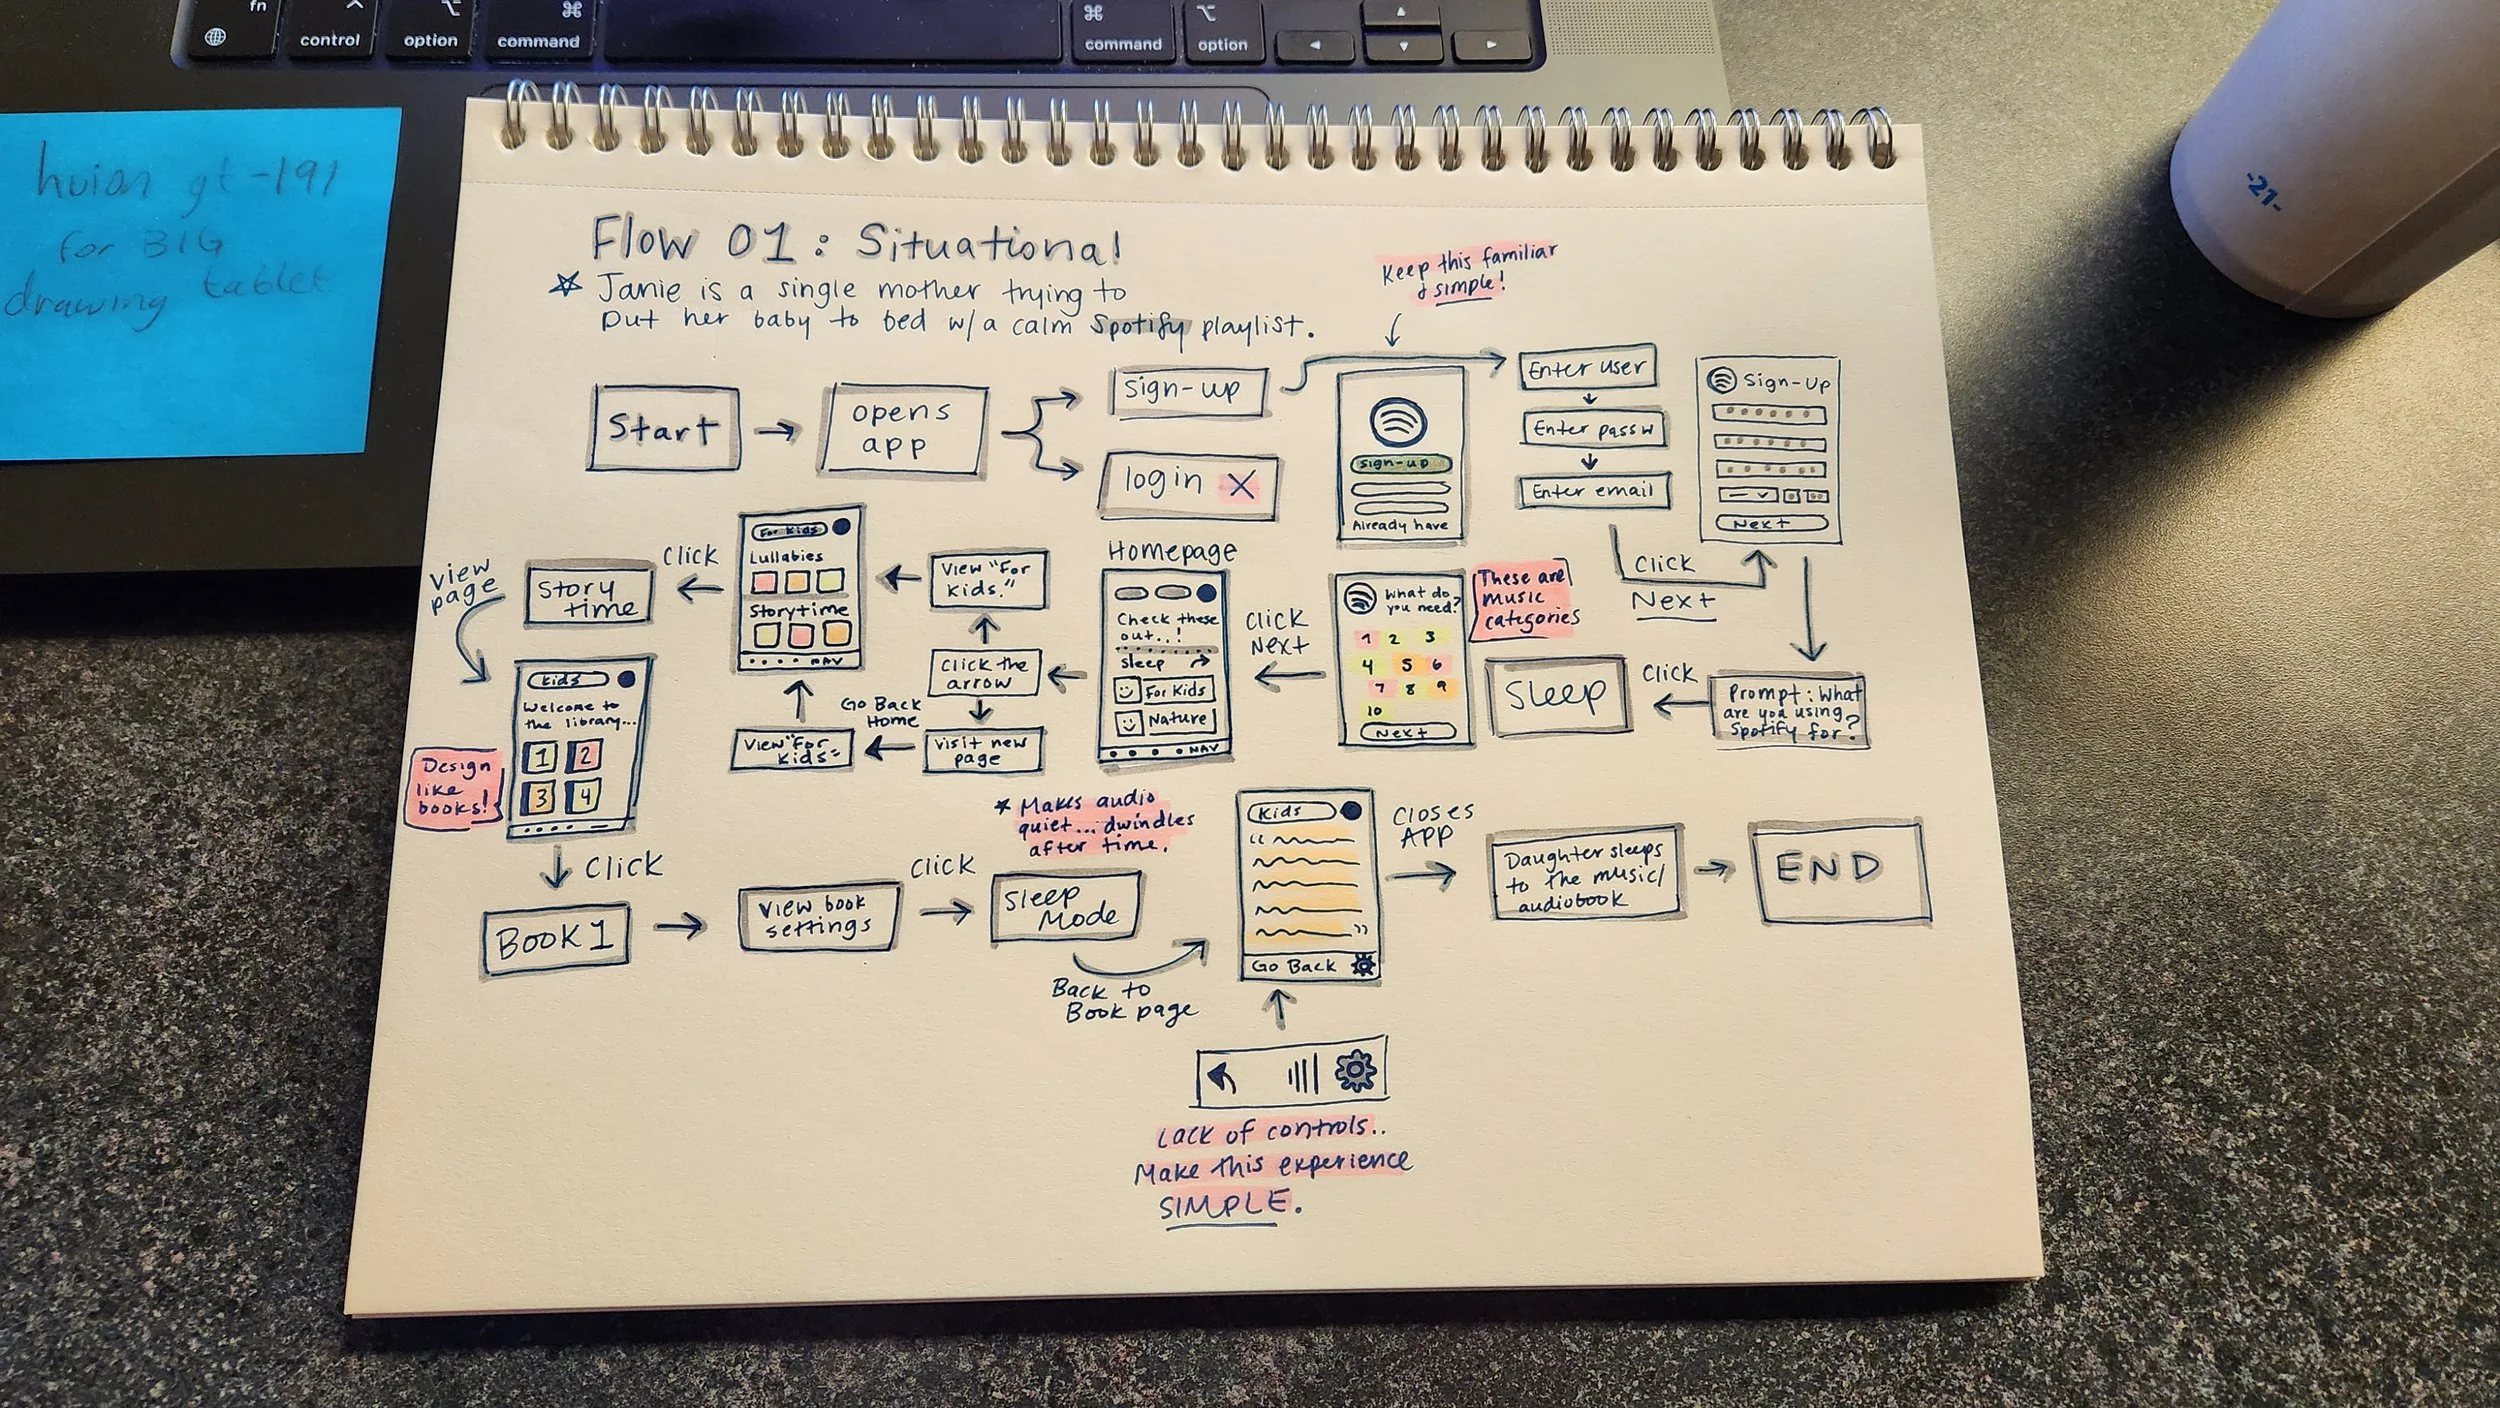 fn
control
option
command
command
option
huion gt-191
for BIG
drawing tablet
-21-
Flow 01: Situational
Janie is a single mother trying to
put her baby to bed w/a calm Spotify playlist.
Keep this familiar
& simple!
Start
opens
app
sign-up
login X
sign-up
Already have
Enter user
Enter passw
Enter email
Click
Next
Sign-Up
Next
Prompt: What
are you using
Spotify for?
Click
Sleep
These are
music
categories
What do
you need?
1 2 3
4 5 6
7 8 9
10
Next
Click
Next
Homepage
Check these
out..!
sleep
For Kids
Nature
NAV
Click the
arrow
View "For
Kids."
Visit new
page
Go Back
Home
View "For
Kids"
For Kids
Lullabies
Storytime
NAV
Click
Story
time
View
page
Kids
Welcome to
the library...
1 2
3 4
Design
like
books!
Click
Book 1
View book
settings
Click
Sleep
Mode
* Makes audio
quiet... dwindles
after time.
Back to
Book page
Kids
Go Back
Closes
APP
Daughter sleeps
to the music/
audiobook
END
Lack of controls..
Make this experience
SIMPLE.